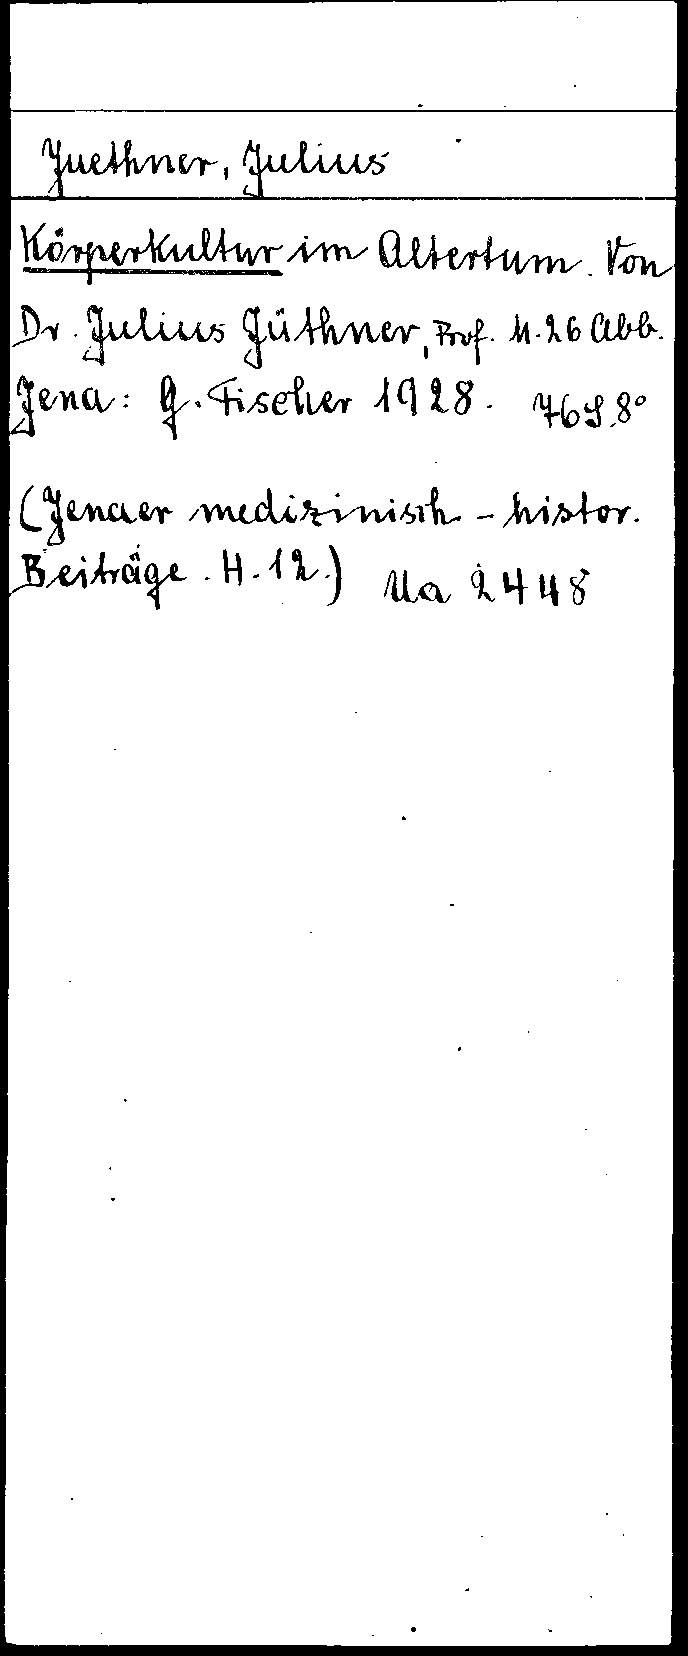 Juethner, Julius
Körperkultur im Altertum. Von
Dr. Julius Jüthner, Prof. M. 26 Abb.
Jena: G. Fischer 1928. 76 S. 8°
(Jenaer medizinisch-histor.
Beiträge. H. 12.) Ua 2448